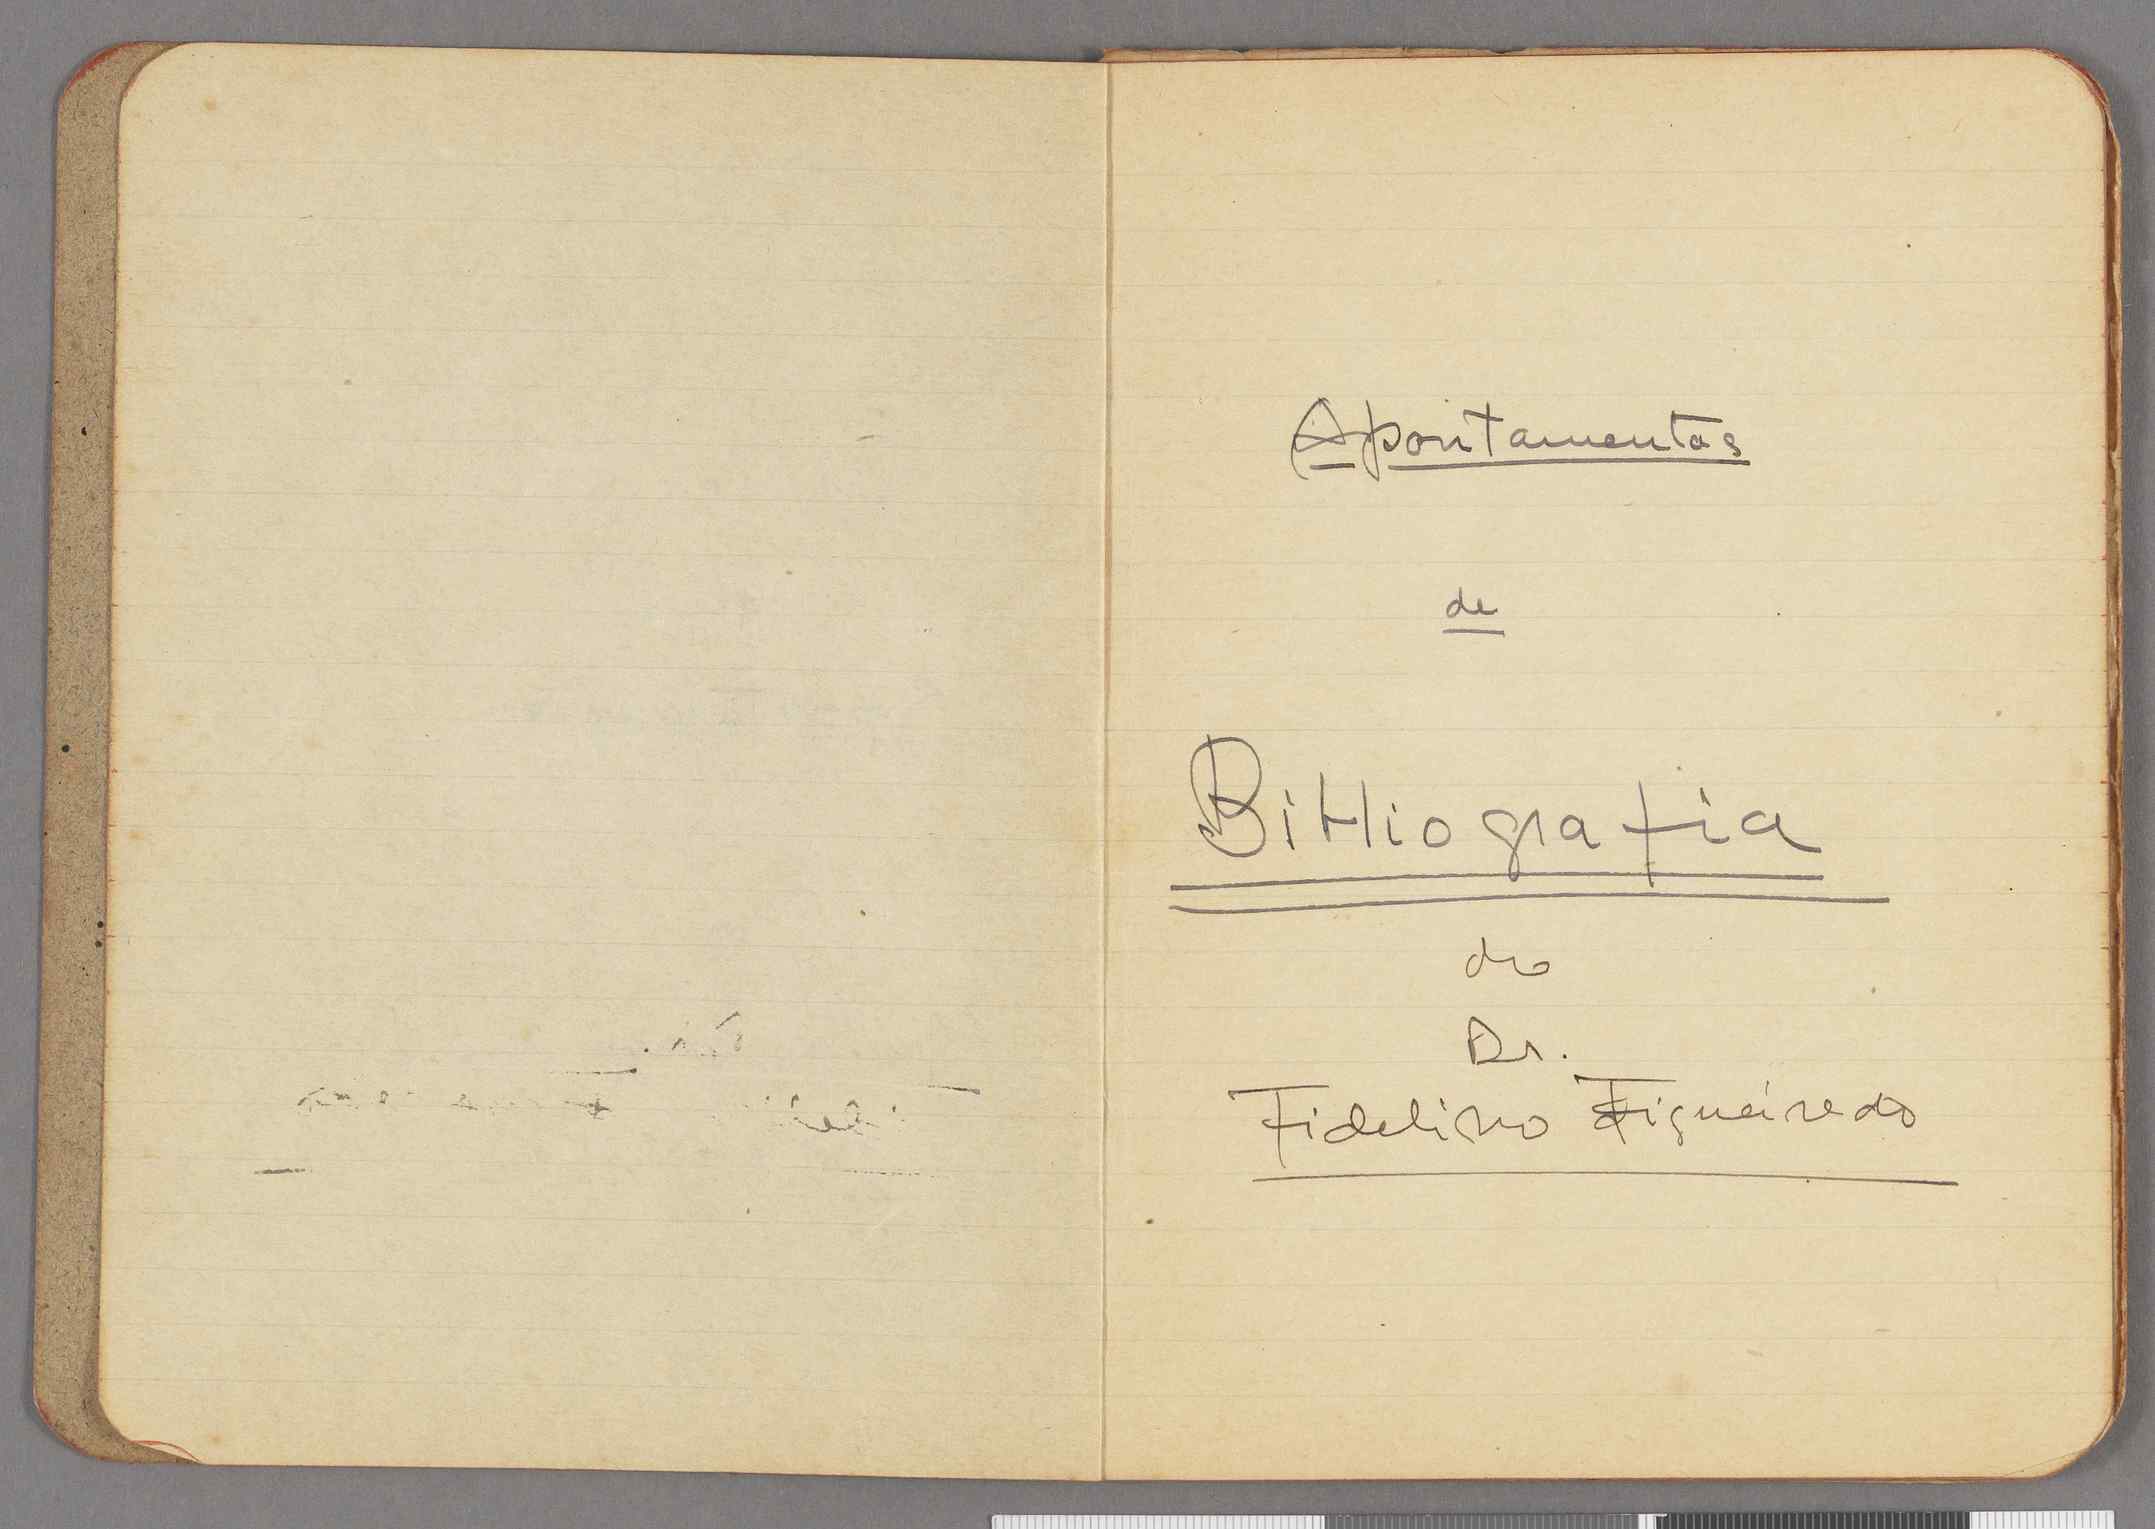 Apontamentos
de
Bibliografia
do
Dr.
Fidelino Figueiredo